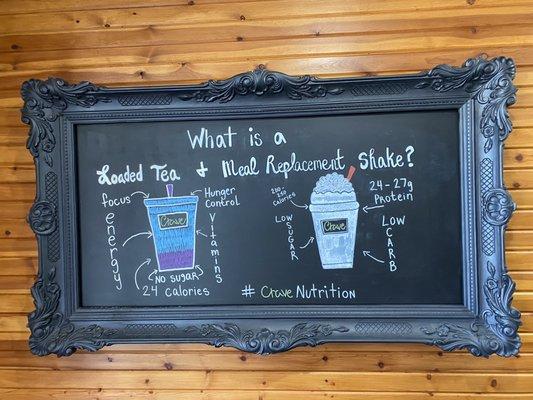 What is a
Loaded Tea & Meal Replacement Shake?
focus
Hunger
Control
energy
Crave
Vitamins
No sugar
24 calories
200-250
calories
24-27g
Protein
Low
SUGAR
Crave
Low
CARB
# CraveNutrition